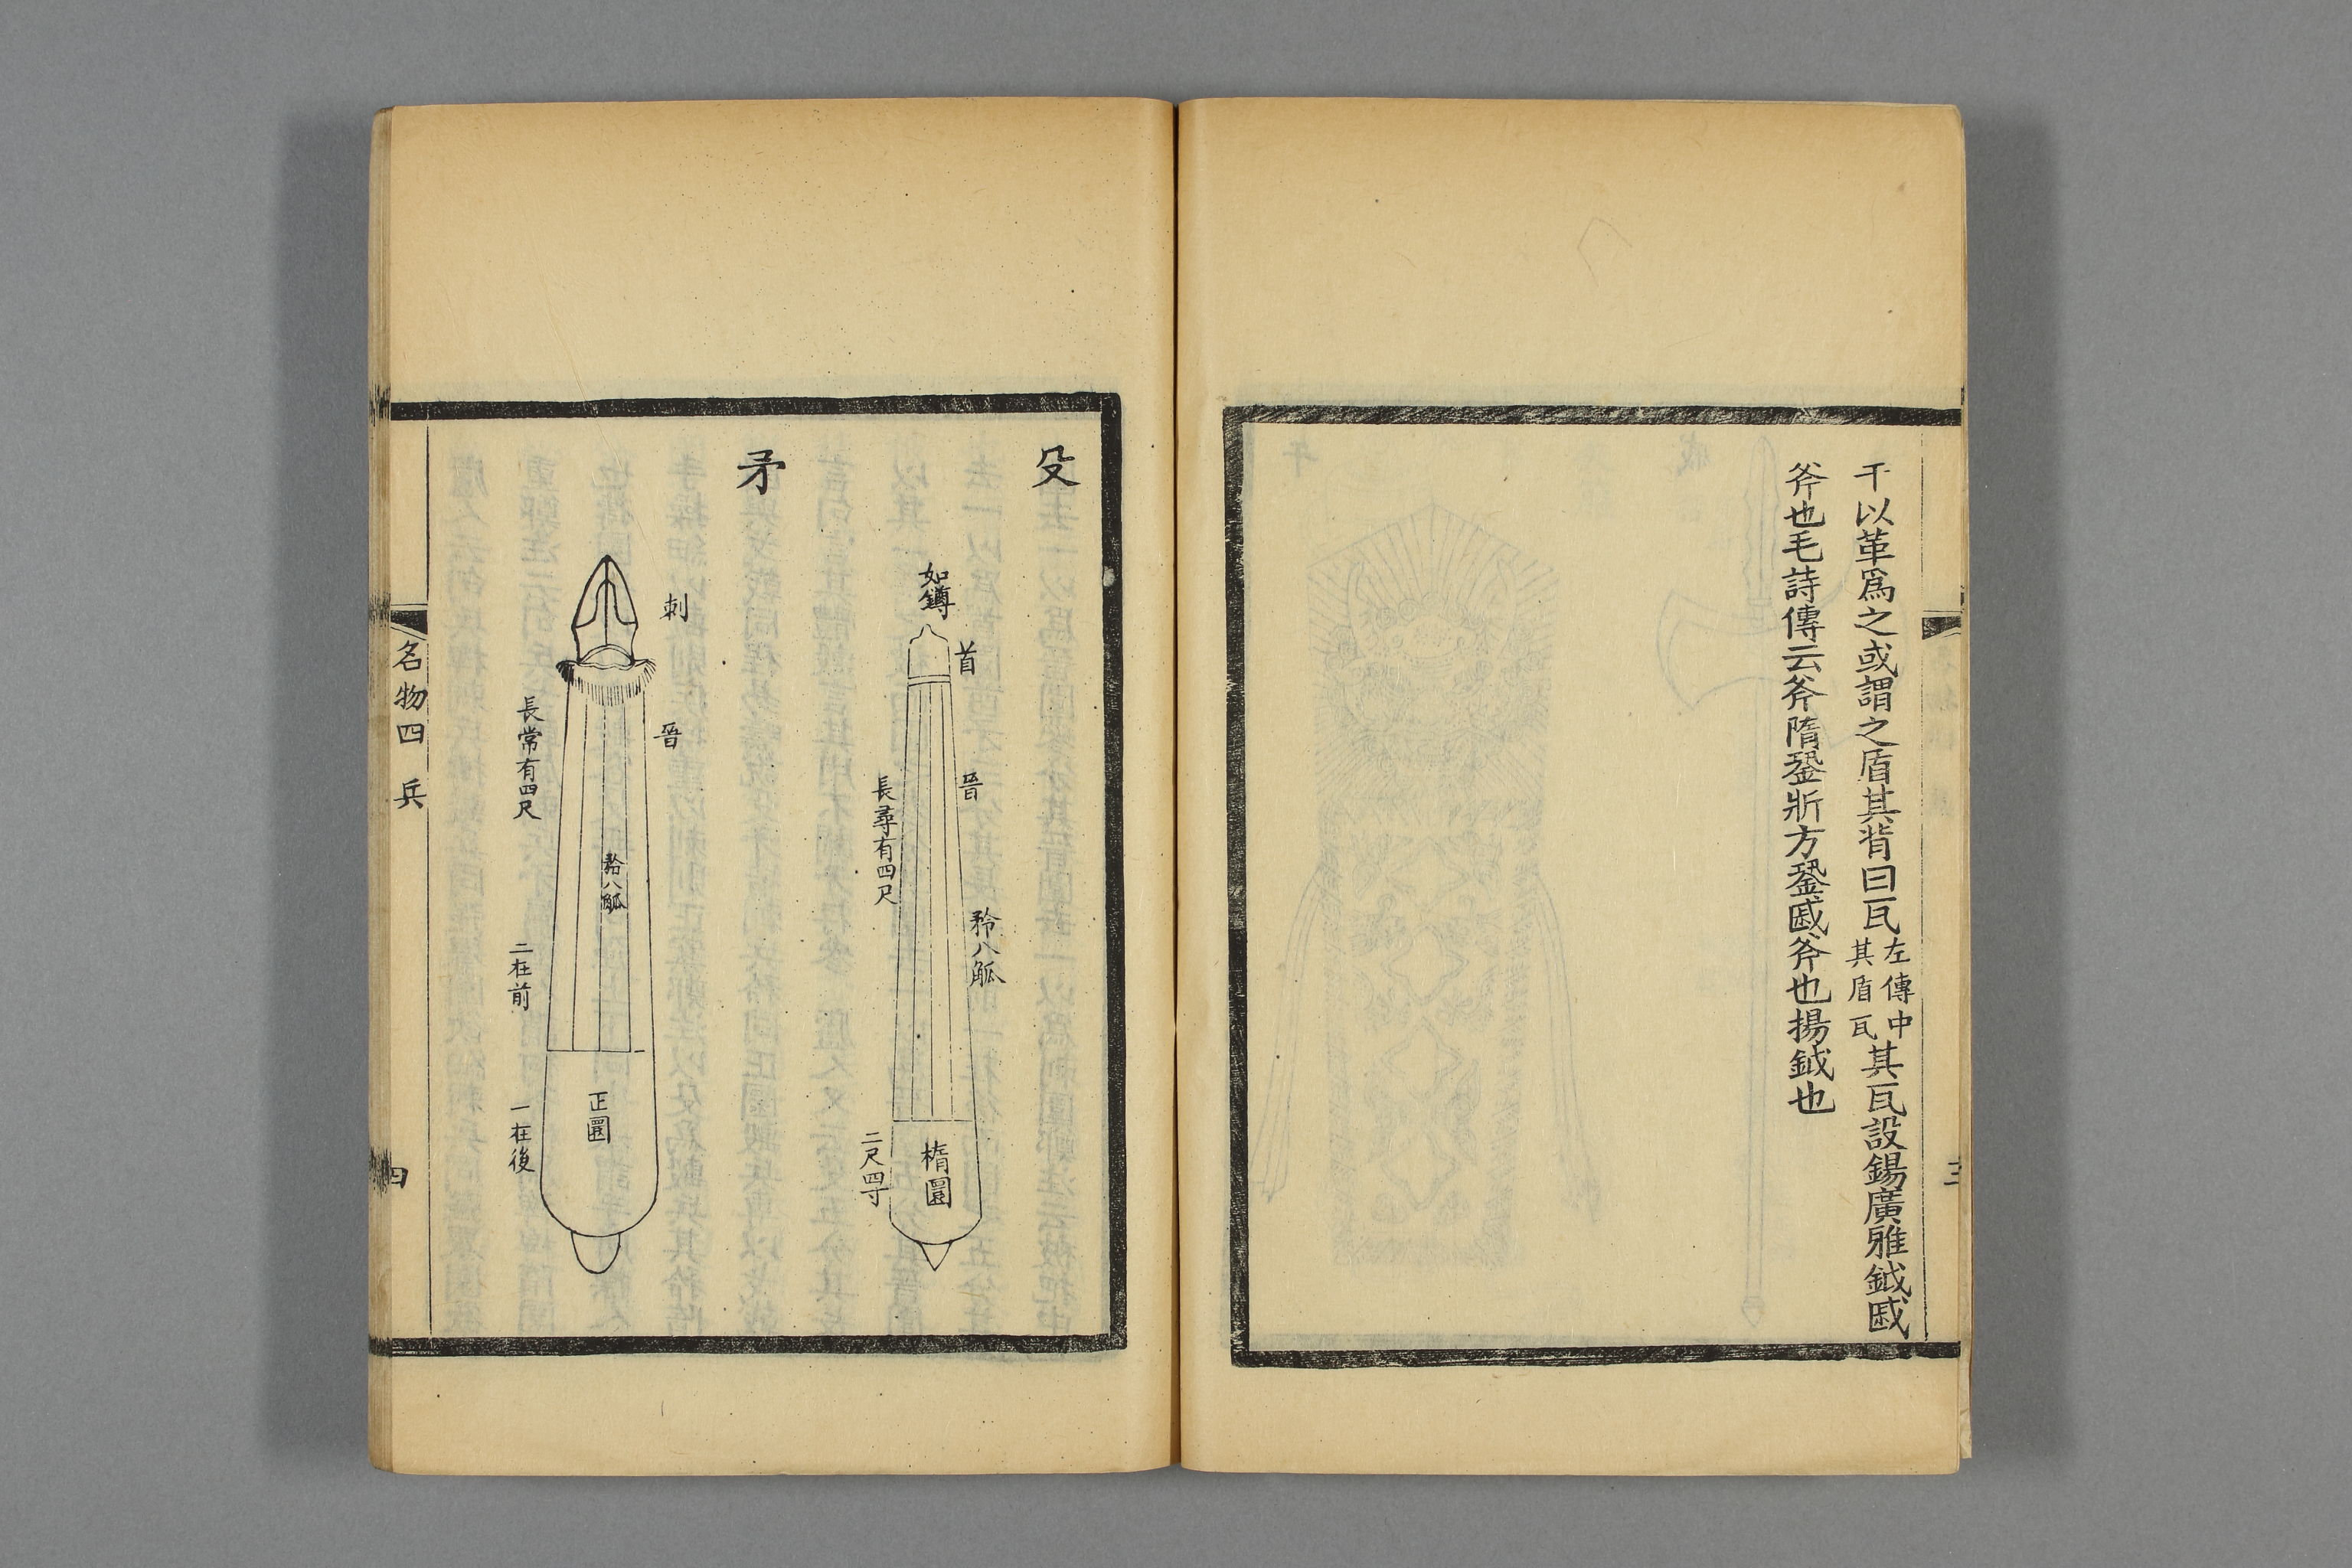 干以革爲之或謂之盾其背曰瓦左傳中其盾瓦其瓦設錫廣雅鉞戚
斧也毛詩傳云斧隋銎斨方銎戚斧也揚鉞也
三
殳
如鐏
首
晉
矜八觚
長尋有四尺
二尺四寸
楕圜
矛
刺
晉
長常有四尺
矜八觚
二在前
正圜
一在後
名物四 兵
四